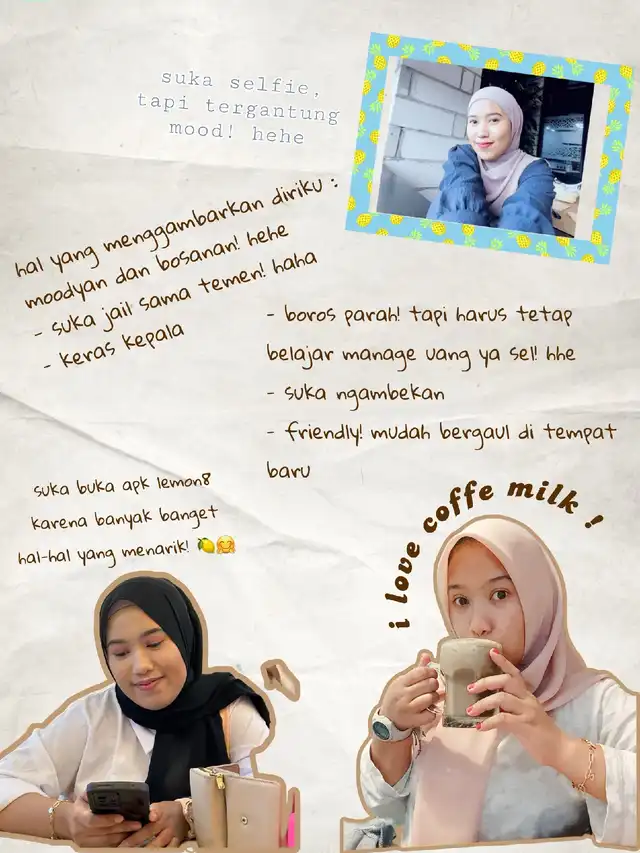 suka selfie,
tapi tergantung
mood! hehe
hal yang menggambarkan diriku :
moodyan dan bosanan! hehe
- suka jail sama temen! haha
- keras kepala
- boros parah! tapi harus tetap
belajar manage uang ya sel! hhe
- suka ngambekan
- friendly! mudah bergaul di tempat
baru
suka buka apk lemon8
karena banyak banget
hal-hal yang menarik! 🍋🤗
i love coffe milk !